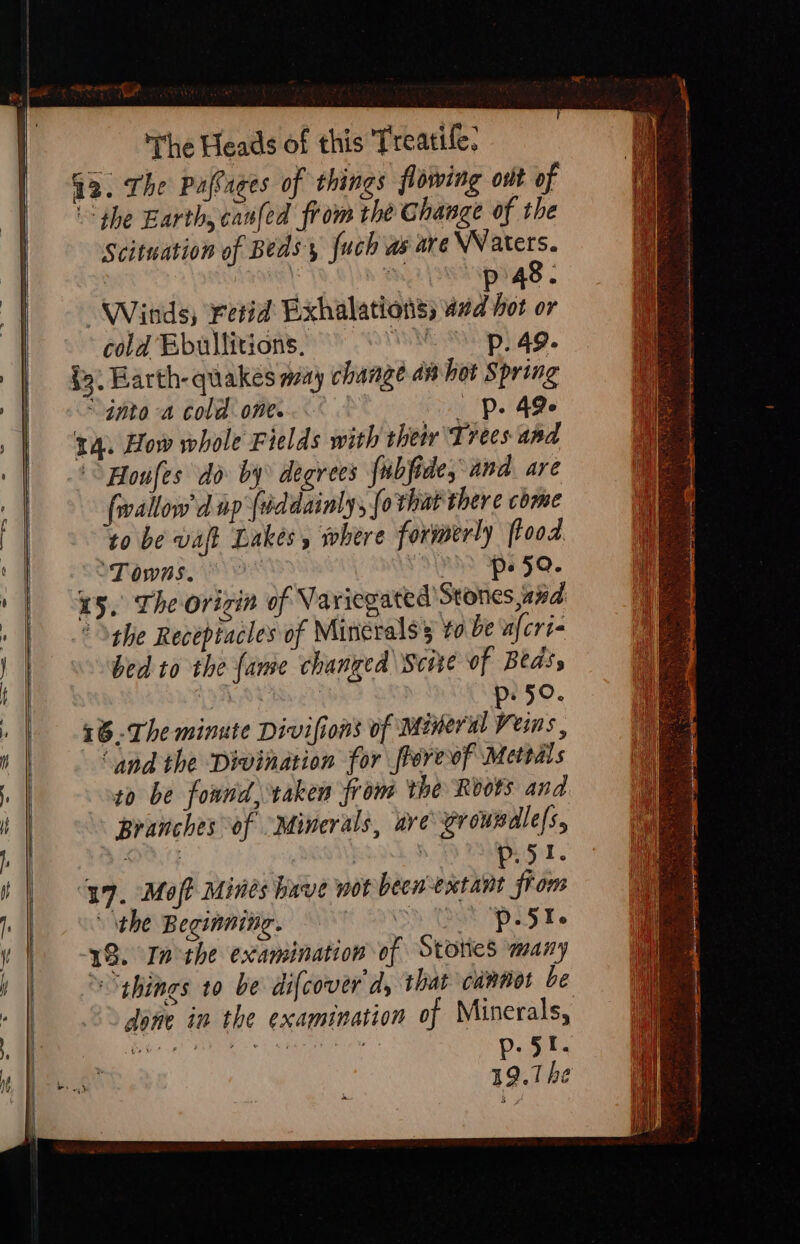 The Heads of this Treatiſe.
12. The Paſſages of things flowing out of
the Earth, cauſed from the Change of the
Scituation of Beds; ſuch as are VVaters.
p 48.
VVinds, Fetid Exhalations, and hot or
cold Ebullitions. p. 49.
13. Earth-quakes may change an hot Spring
into a cold one. p. 49.
14. How whole Fields with their Trees and
Houſes do by degrees ſubſide, and are
ſwallow'd up ſuddainly, ſo that there come
to be vaſt Lakes, where formerly ſtood
Towns. p. 50.
15. The origin of Variegated Stones, and
the Receptacles of Minerals; to be aſcri-
bed to the ſame changed Scite of Beds,
p. 50.
16. The minute Diviſions of Mineral Veins,
and the Divination for ſtore of Mettals
to be found, taken from the Roots and
Branches of Minerals, are groundleſs,
p. 51.
17. Moſt Mines have not been extant from
the Beginning. p. 51.
18. In the examination of Stones many
things to be diſcover'd, that cannot be
done in the examination of Minerals,
p. 51.
19. The